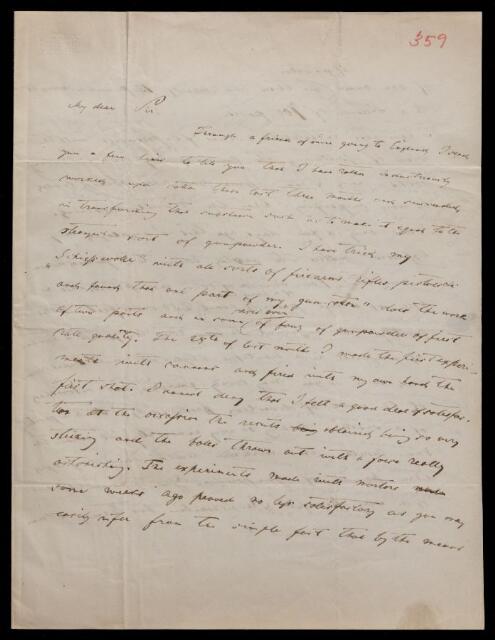 359
My dear Sir
Through a friend of mine going to England I send
you a few lines to tell you that I have been
worked upon these last three months and succeeded
in transforming that substance such as to make it equal to the
strongest sort of gunpowder. I have tried my
with all sorts of firearms rifles, pistols
and found that one part of my gun does the work
of two parts and in some even of four of gunpowder of first
rate quality. The of last month I made the first experi-
ments with cannons and fired with my own hands the
first shot. I cannot deny that I felt a good deal of satisfac-
tion at the occasion the results obtained being so very
striking and the balls thrown out with a force really
astonishing. The experiments made with mortars
some weeks ago proved no less satisfactory as you may
easily infer from the simple fact that by the means